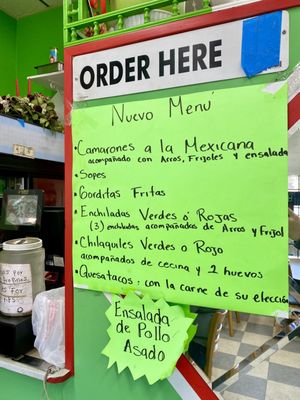 ORDER HERE
Nuevo Menú
• Camarones a la Mexicana
acompañado con Arros, Frijoles y ensalada
• Sopes
• Gorditas Fritas
• Enchiladas Verdes ó Rojas
(3) enchiladas acompañados de Arros y Frijol
• Chilaquiles Verdes o Rojo
acompañados de cecina y 2 huevos
• Quesatacos: con la carne de su elección
Ensalada
de Pollo
Asado